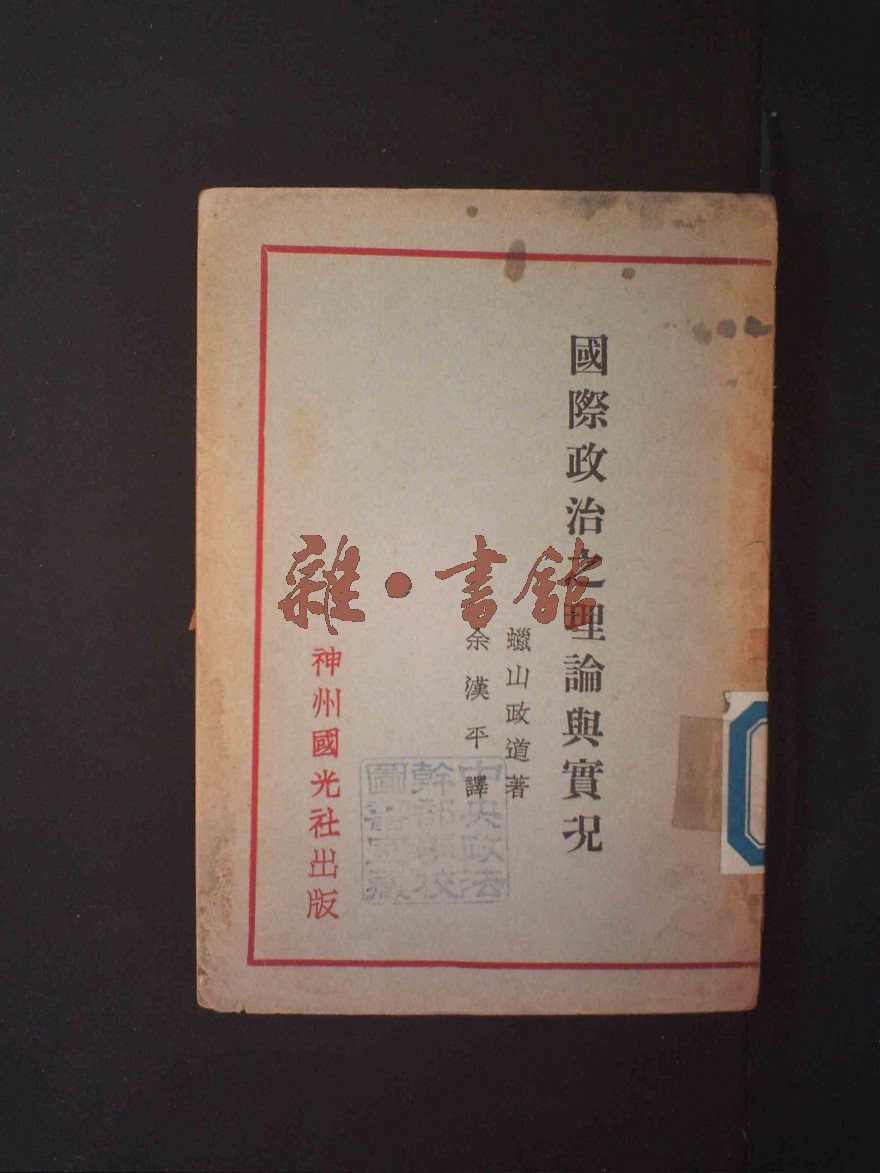 國際政治之理論與實況
蠟山政道著
余漢平譯
神州國光社出版
雜·書館
中央政法
幹部學校
圖書室藏